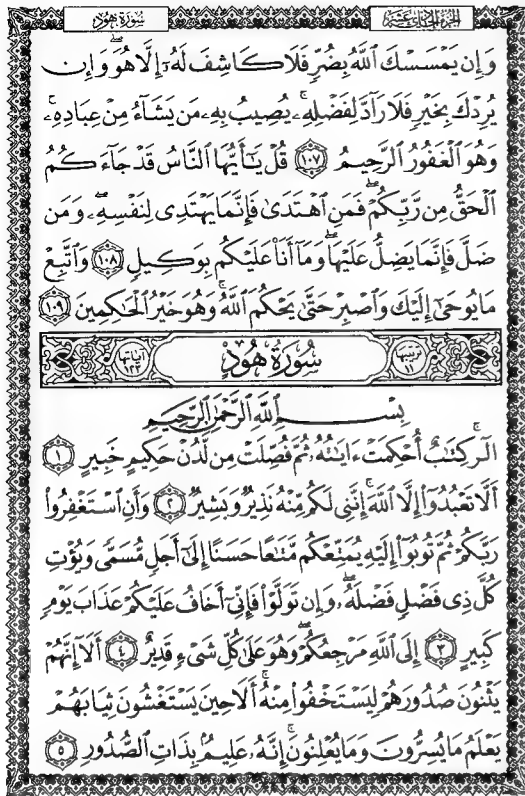 سُورَةُ هُودٍ
الجُزْءُ الحَادِيَ عَشَرَ
وَإِن يَمْسَسْكَ ٱللَّهُ بِضُرٍّ فَلَا كَاشِفَ لَهُۥٓ إِلَّا هُوَۖ وَإِن
يُرِدْكَ بِخَيْرٍ فَلَا رَآدَّ لِفَضْلِهِۦۚ يُصِيبُ بِهِۦ مَن يَشَآءُ مِنْ عِبَادِهِۦۚ
وَهُوَ ٱلْغَفُورُ ٱلرَّحِيمُ ١٠٧ قُلْ يَـٰٓأَيُّهَا ٱلنَّاسُ قَدْ جَآءَكُمُ
ٱلْحَقُّ مِن رَّبِّكُمْۖ فَمَنِ ٱهْتَدَىٰ فَإِنَّمَا يَهْتَدِى لِنَفْسِهِۦۖ وَمَن
ضَلَّ فَإِنَّمَا يَضِلُّ عَلَيْهَاۖ وَمَآ أَنَا۠ عَلَيْكُم بِوَكِيلٍ ١٠٨ وَٱتَّبِعْ
مَا يُوحَىٰٓ إِلَيْكَ وَٱصْبِرْ حَتَّىٰ يَحْكُمَ ٱللَّهُۚ وَهُوَ خَيْرُ ٱلْحَـٰكِمِينَ ١٠٩
ترتيبها ١١
سُورَةُ هُودٍ
آياتها ١٢٣
بِسْمِ ٱللَّهِ ٱلرَّحْمَـٰنِ ٱلرَّحِيمِ
الٓرۚ كِتَـٰبٌ أُحْكِمَتْ ءَايَـٰتُهُۥ ثُمَّ فُصِّلَتْ مِن لَّدُنْ حَكِيمٍ خَبِيرٍ ١
أَلَّا تَعْبُدُوٓا۟ إِلَّا ٱللَّهَۚ إِنَّنِى لَكُم مِّنْهُ نَذِيرٌ وَبَشِيرٌ ٢ وَأَنِ ٱسْتَغْفِرُوا۟
رَبَّكُمْ ثُمَّ تُوبُوٓا۟ إِلَيْهِ يُمَتِّعْكُم مَّتَـٰعًا حَسَنًا إِلَىٰٓ أَجَلٍ مُّسَمًّى وَيُؤْتِ
كُلَّ ذِى فَضْلٍ فَضْلَهُۥۖ وَإِن تَوَلَّوْا۟ فَإِنِّىٓ أَخَافُ عَلَيْكُمْ عَذَابَ يَوْمٍ
كَبِيرٍ ٣ إِلَى ٱللَّهِ مَرْجِعُكُمْۖ وَهُوَ عَلَىٰ كُلِّ شَىْءٍ قَدِيرٌ ٤ أَلَآ إِنَّهُمْ
يَثْنُونَ صُدُورَهُمْ لِيَسْتَخْفُوا۟ مِنْهُۚ أَلَا حِينَ يَسْتَغْشُونَ ثِيَابَهُمْ
يَعْلَمُ مَا يُسِرُّونَ وَمَا يُعْلِنُونَۚ إِنَّهُۥ عَلِيمٌۢ بِذَاتِ ٱلصُّدُورِ ٥